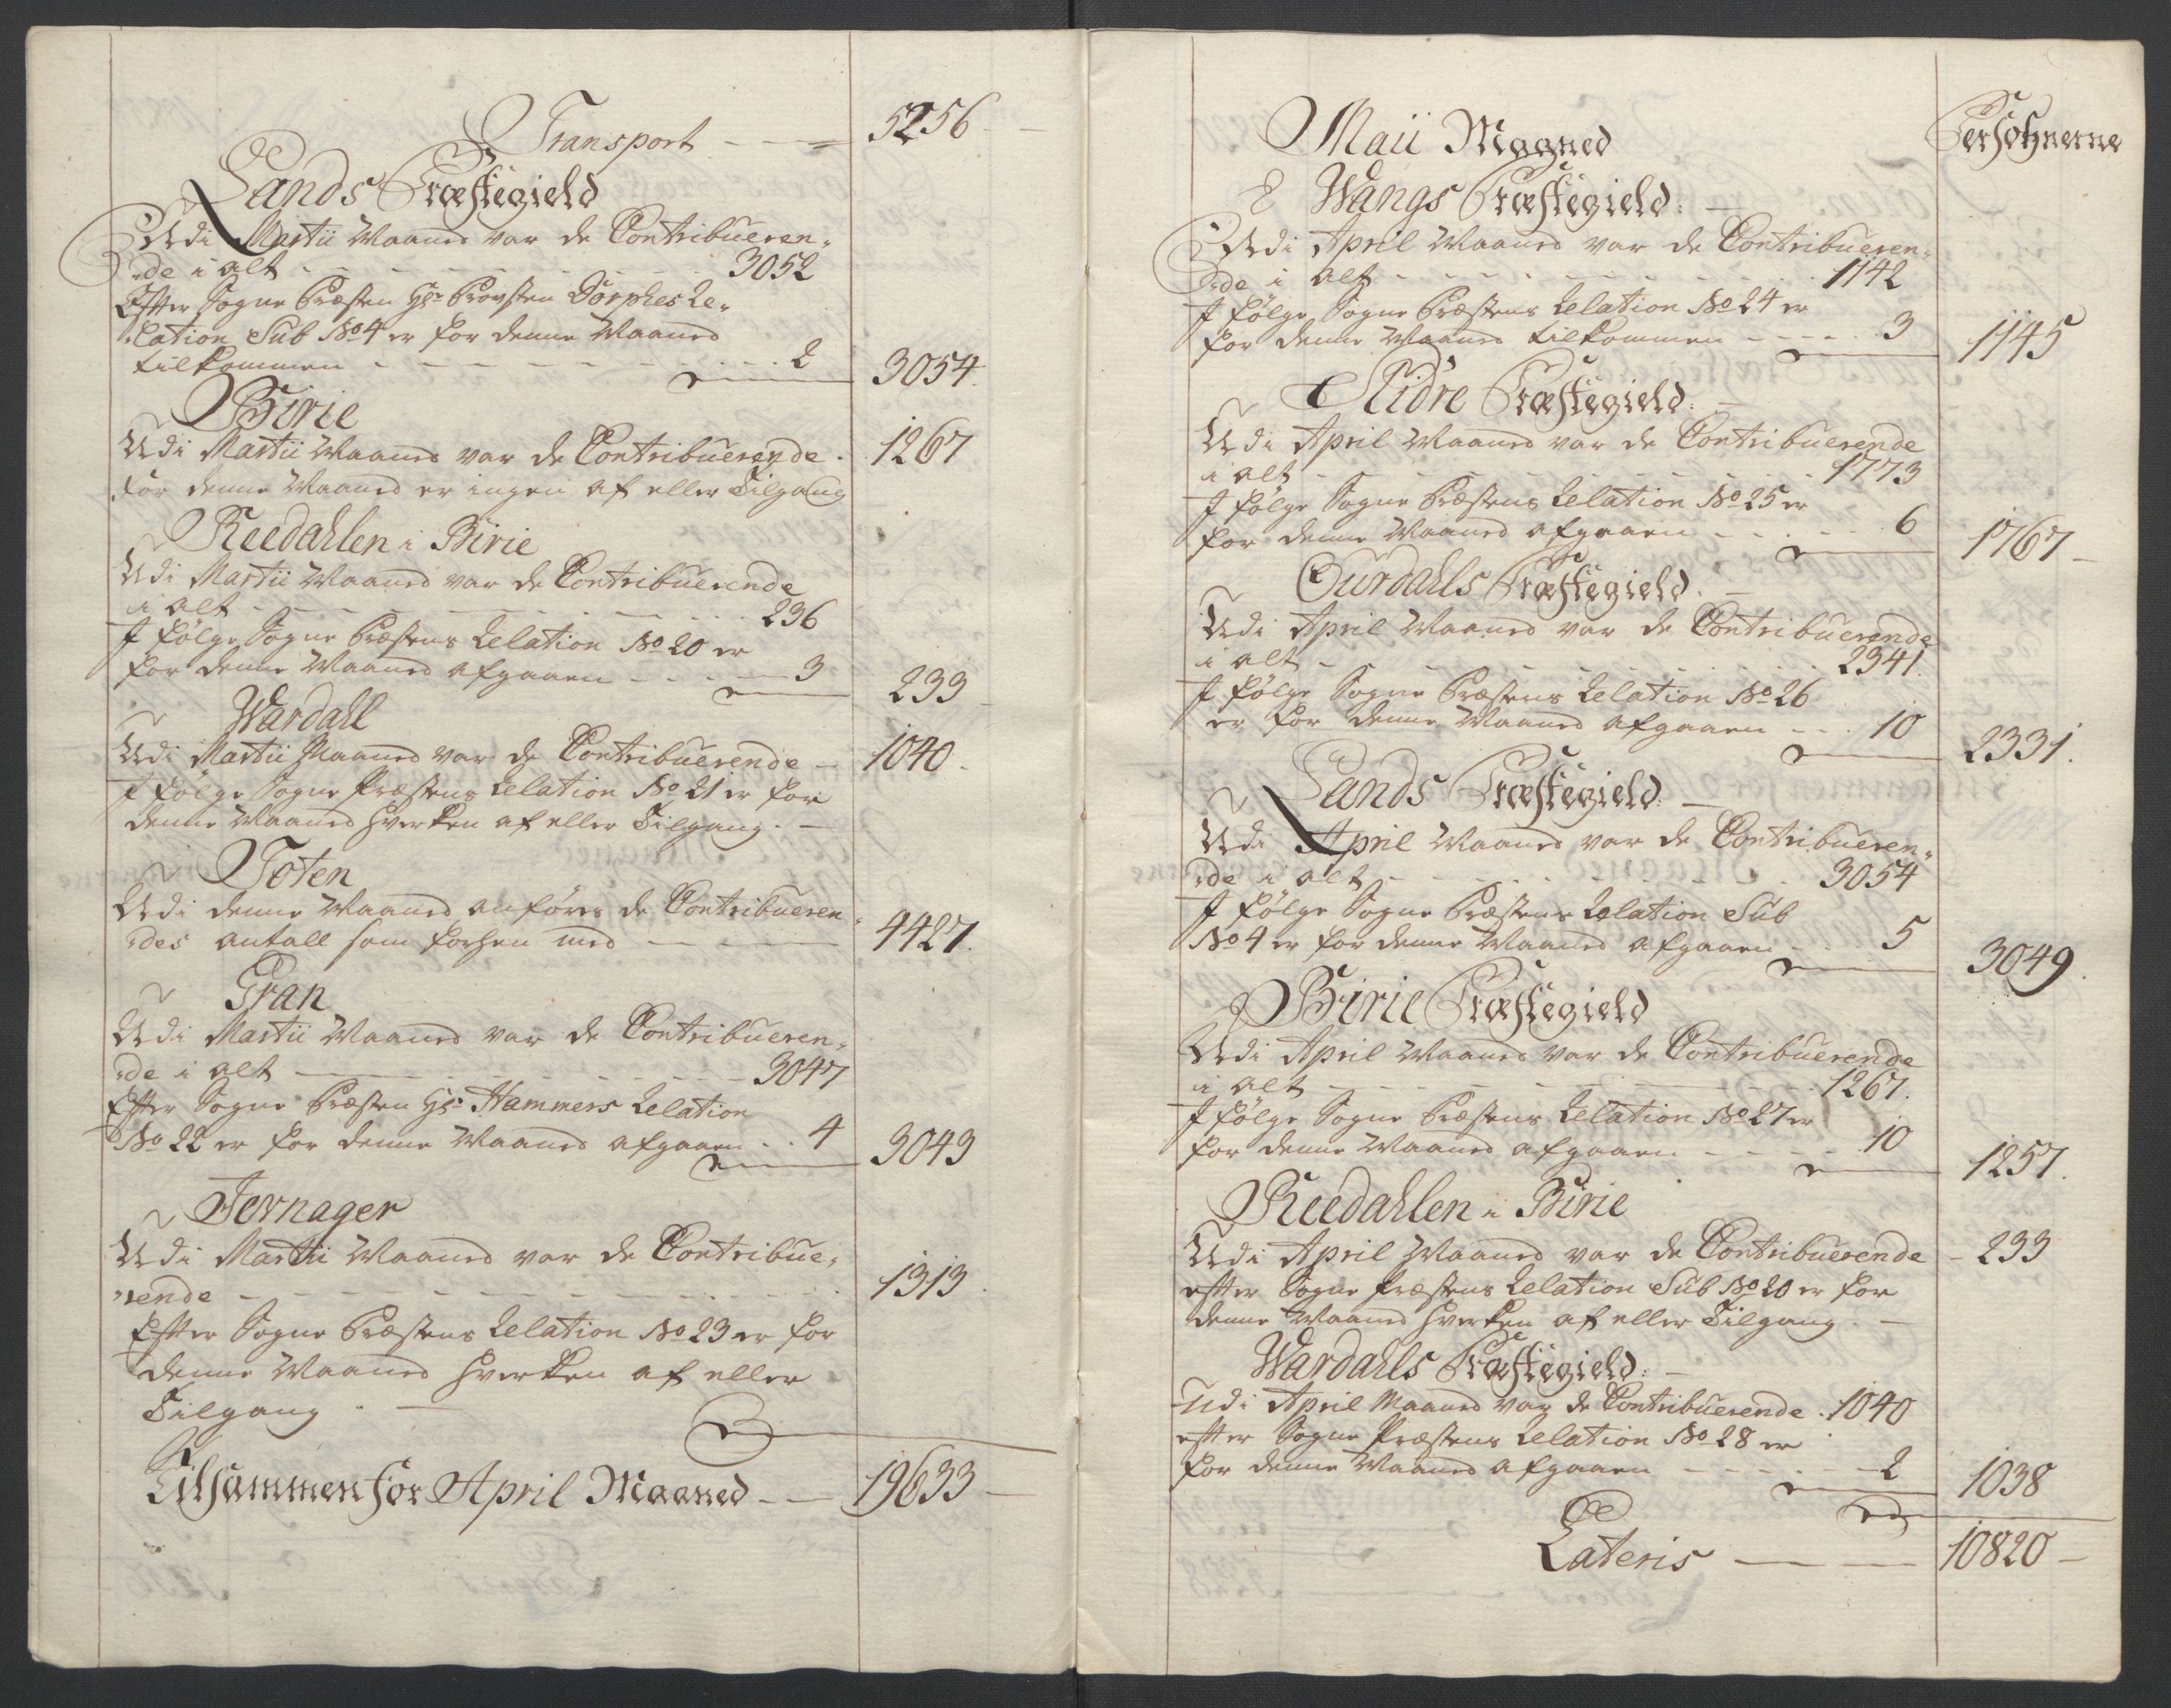 Transport - - - 5256
Lands Præstegield
Udi Martii Maaned var de Contribueren-
de i alt - - - 3052
Efter Sogne Præsten Hr. Provsten Dorphes Re-
lation Sub No 4 er for denne Maaned
tilkommen - - - 2 3054.
Birie
Udi Martii Maaned var de Contribuerende. 1267
For denne Maaned er ingen af eller Tilgang
Reedahlen i Birie
Udi Martii Maaned var de Contribuerende
i alt - - - 236
I følge Sogne Præstens Relation No 20 er
for denne Maaned afgaaen - - - 3 233
Wardahl
Udi Martii Maaned var de Contribuerende - 1040.
I følge Sogne Præstens Relation No 21 er for
denne Maaned hverken af eller Tilgang. -
Toten
Udi denne Maaned anføres de Contribueren-
des antall som forhen med - - - 4427.
Gran
Udi Martii Maaned var de Contribueren-
de i alt - - - 3047
Efter Sogne Præsten Hr. Hammers Relation
No 22 er for denne Maaned afgaaen - - 4 3043
Jevnager
Udi Martii Maaned var de Contribue-
rende - - - 1313.
Efter Sogne Præstens Relation No 23 er for
denne Maaned hverken af eller
Tilgang. -
Tilsammen for April Maaned - - 19633 -
Maii Maaned Persohnerne
Wangs Præstegield. -
Udi April Maaned var de Contribueren-
de i alt - - - 1142
I følge Sogne Præstens Relation No 24 er
for denne Maaned tilkommen - - - 3 1145
Slidre Præstegield. -
Udi April Maaned var de Contribuerende
i alt - - - 1773
I følge Sogne Præstens Relation No 25 er
for denne Maaned afgaaen - - - 6 1767 -
Ourdahls Præstegield. -
Udi April Maaned var de Contribuerende
i alt - - - 2341.
I følge Sogne Præstens Relation No 26
er for denne Maaned afgaaen - - 10 2331.
Lands Præstegield. -
Udi April Maaned var de Contribueren-
de i alt - - - 3054
I følge Sogne Præstens Relation Sub
No 4 er for denne Maaned afgaaen - - 5 3049.
Birie Præstegield
Udi April Maaned var de Contribuerende
i alt - - - 1267.
I følge Sogne Præstens Relation No 27 er
for denne Maaned afgaaen - - - 10 1257.
Reedahlen i Birie
Udi April Maaned var de Contribuerende - 233
efter Sogne Præstens Relation Sub No 20 er for
denne Maaned hverken af eller Tilgang. -
Wardahls Præstegield. -
Udi April Maaned var de Contribuerende. 1040
efter Sogne Præstens Relation No 28 er
for denne Maaned afgaaen - - - 2 1038
Lateris - - - 10820 -